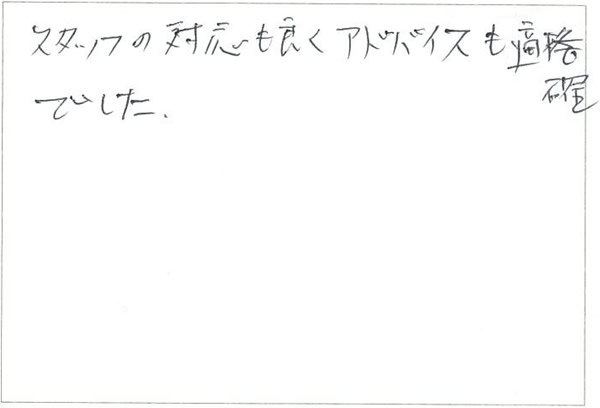 スタッフの対応も良くアドバイスも適格
確
でした.